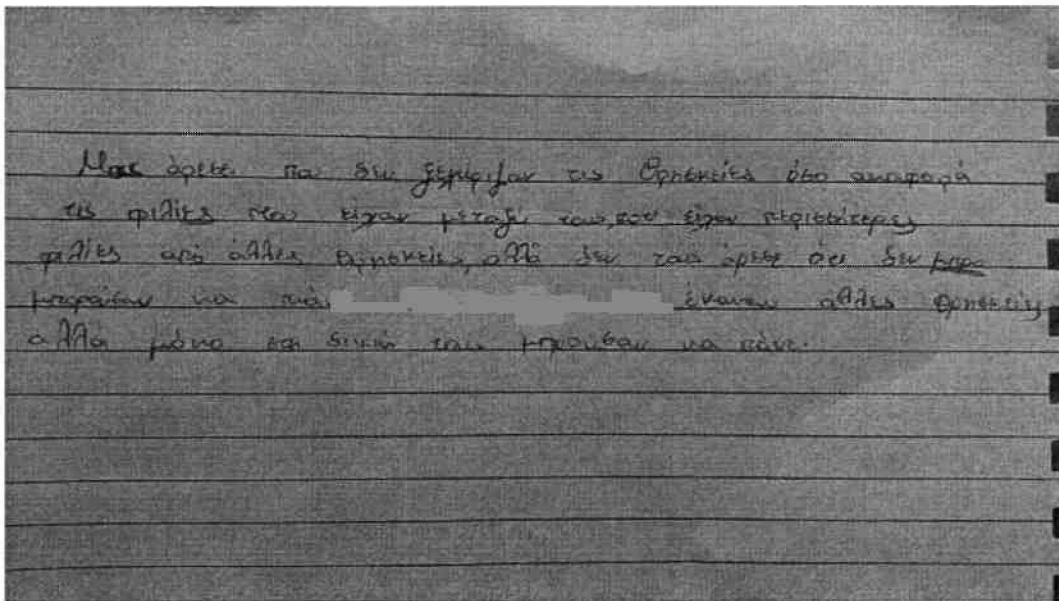 Μας άρεσε που δεν ξεχώριζαν τις θρησκείες όσο αναφορά
τις φιλίες που είχαν μεταξύ τους, που είχαν περισσότερες
φιλίες από άλλες θρησκείες, αλλά δεν του άρεσε ότι δεν μπρο
μπορούσαν να πάν έκαναν άλλες θρησκείες
αλλά μόνο τη δική τους μπρούσαν να κάνε.